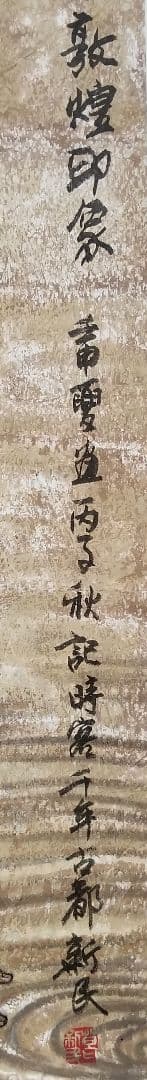 敦煌印象 壬申夏畫丙子秋記時客千年古都新民